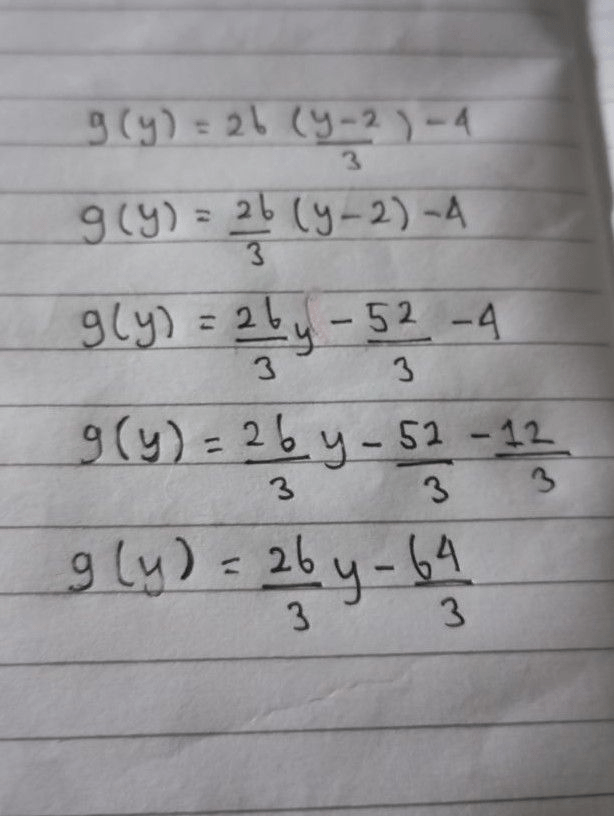 g(y) = 26 (y-2/3) - 4
g(y) = 26/3 (y-2) - 4
g(y) = 26/3 y - 52/3 - 4
g(y) = 26/3 y - 52/3 - 12/3
g(y) = 26/3 y - 64/3